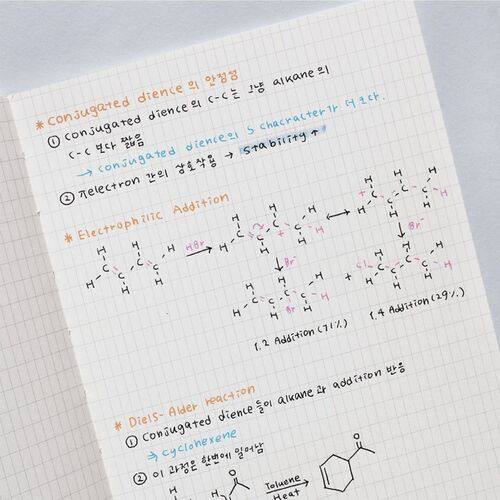 * Conjugated dience의 안정성
① Conjugated dience의 C-C는 그냥 alkane의
C-C 보다 짧음
→ Conjugated dience의 S chacracter가 더 크다.
② πelectron 간의 상호작용 → Stability↑
* Electrophilic Addition
HBr
Br⁻
Br⁻
1.2 Addition(71%)
1.4 Addition(29%)
* Diels-Alder reaction
① Conjugated dience들이 alkane과 addition 반응
⇒ cyclohexene
② 이 과정은 한번에 일어남
Toluene
Heat